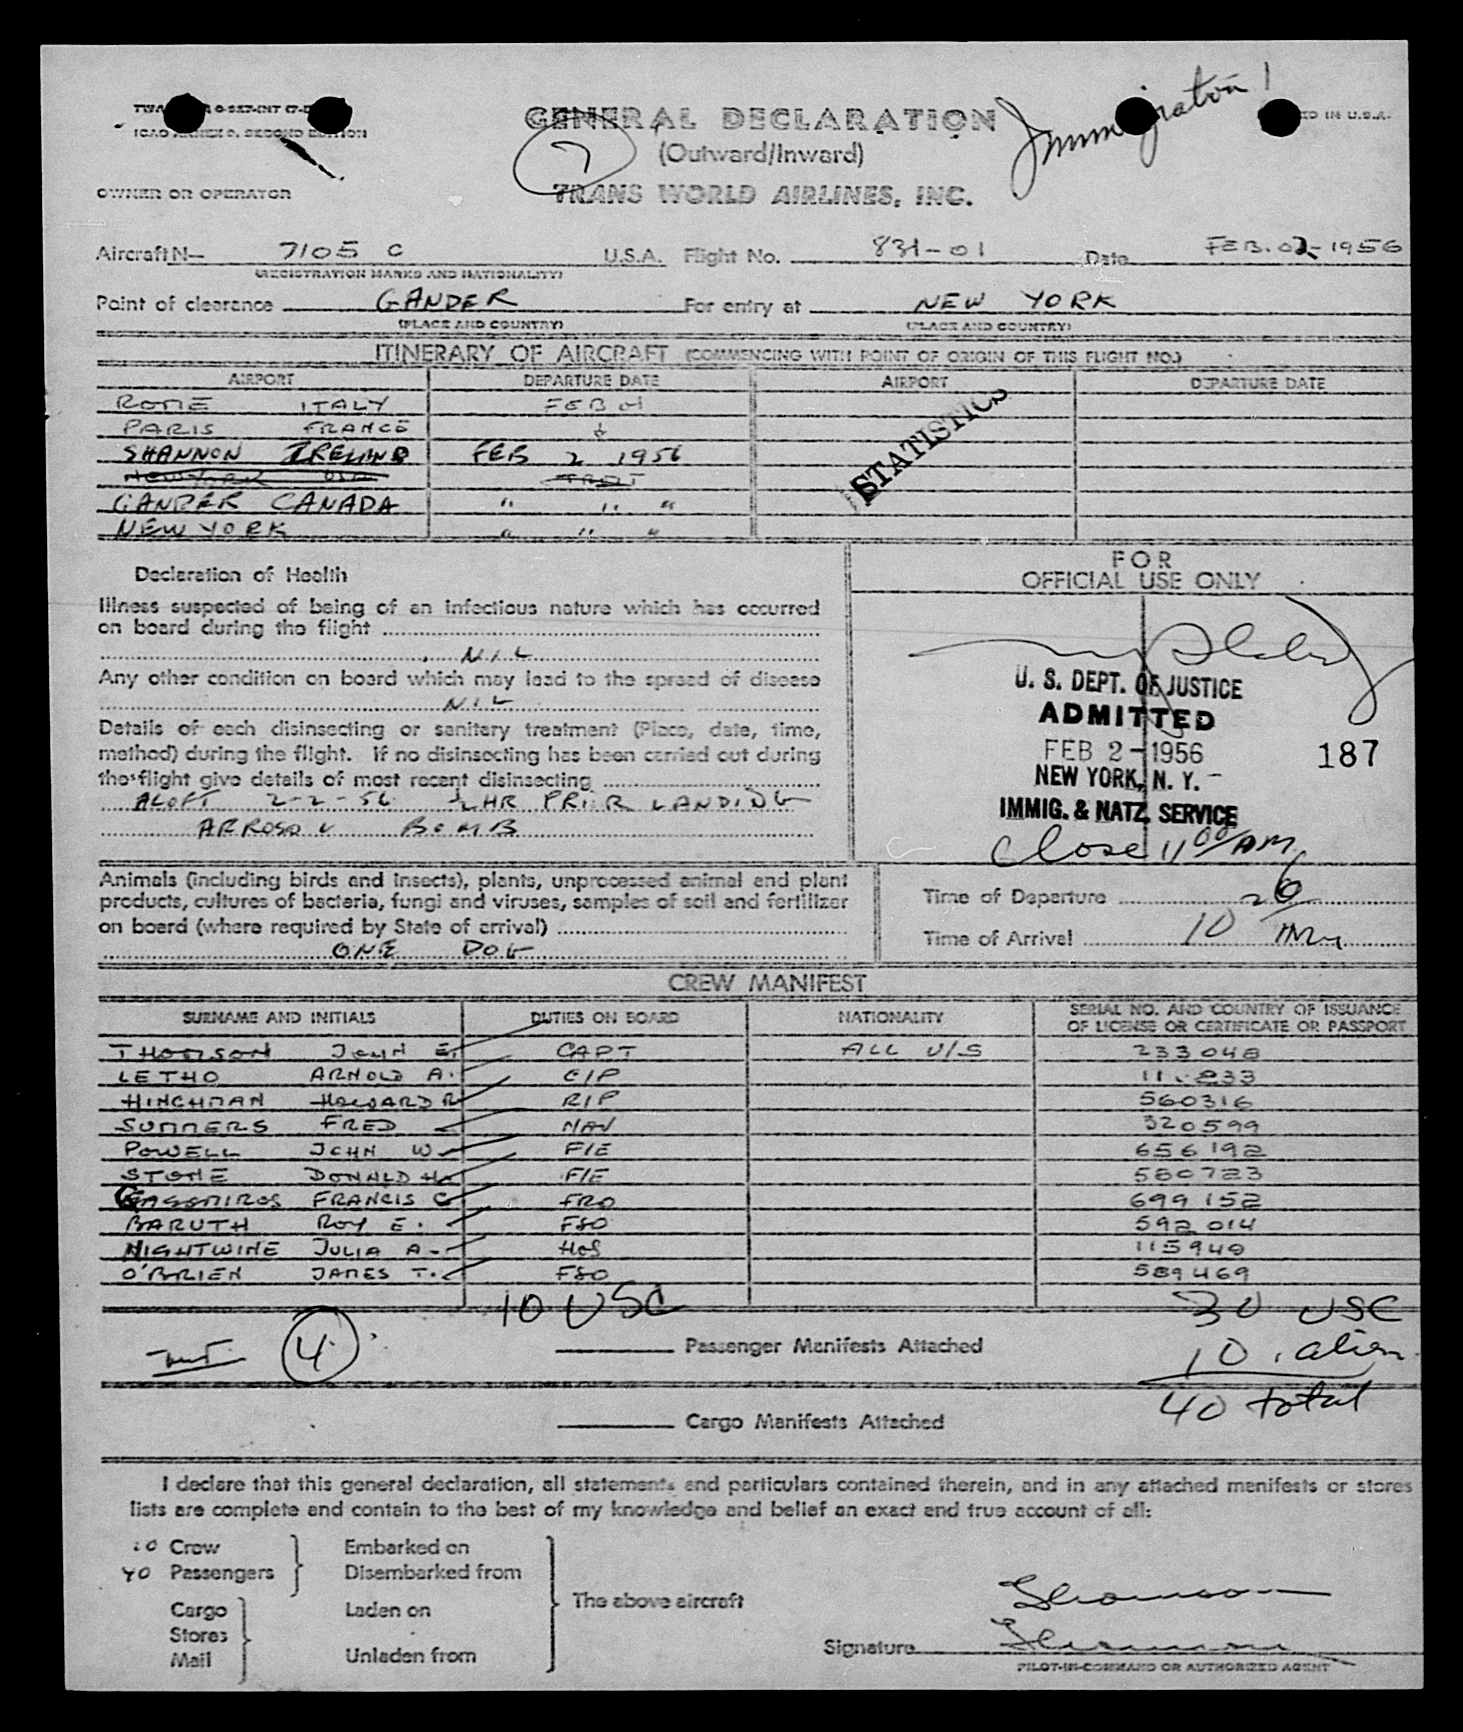 GENERAL DECLARATION
Immigration!
IN U.S.A.
(Outward/Inward)
7
OWNER OR OPERATOR
TRANS WORLD AIRLINES, INC.
Aircraft N— 7105 C U.S.A. Flight No. 831-01 Date FEB. 02-1956
(REGISTRATION MARKS AND NATIONALITY)
Point of clearance GANDER For entry at NEW YORK
(PLACE AND COUNTRY) (PLACE AND COUNTRY)
ITINERARY OF AIRCRAFT (COMMENCING WITH POINT OF ORIGIN OF THIS FLIGHT NO.)
AIRPORT DEPARTURE DATE AIRPORT DEPARTURE DATE
ROME ITALY FEB 01
PARIS FRANCE
SHANNON IRELAND FEB 2 1956
GANDER CANADA " " "
NEW YORK " " "
STATISTICS
Declaration of Health
Illness suspected of being of an infectious nature which has occurred
on board during the flight
NIL
Any other condition on board which may lead to the spread of disease
NIL
Details of each disinsecting or sanitary treatment (Place, date, time,
method) during the flight. If no disinsecting has been carried out during
the flight give details of most recent disinsecting
ALOFT 2-2-56 ½ HR PRIOR LANDING
BOMB
FOR
OFFICIAL USE ONLY
U. S. DEPT. OF JUSTICE
ADMITTED
FEB 2 - 1956 187
NEW YORK, N. Y. -
IMMIG. & NATZ. SERVICE
Close 11 00/AM
Animals (including birds and insects), plants, unprocessed animal and plant
products, cultures of bacteria, fungi and viruses, samples of soil and fertilizer
on board (where required by State of arrival)
ONE DOG
Time of Departure
Time of Arrival 10
CREW MANIFEST
SURNAME AND INITIALS DUTIES ON BOARD NATIONALITY SERIAL NO. AND COUNTRY OF ISSUANCE
OF LICENSE OR CERTIFICATE OR PASSPORT
THOMSON JOHN E. CAPT ALL U/S 233048
LETHO ARNOLD A. C/P
HINCHMAN HOWARD R R/P 560316
SUMMERS FRED NAV 320599
POWELL JOHN W F/E 656192
STONE DONALD H. F/E 580723
FRANCIS C FRO 699152
BARUTH ROY E. FSO 592014
NIGHTWINE JULIA A. HOS 115940
O'BRIEN JAMES T. FSO 589469
10 USC 30 USC
4 Passenger Manifests Attached 10 alien
40 total
Cargo Manifests Attached
I declare that this general declaration, all statements and particulars contained therein, and in any attached manifests or stores
lists are complete and contain to the best of my knowledge and belief an exact and true account of all:
10 Crew Embarked on
40 Passengers Disembarked from
The above aircraft
Cargo Laden on
Stores
Mail Unladen from
Thomson
Signature Thomson
PILOT-IN-COMMAND OR AUTHORIZED AGENT